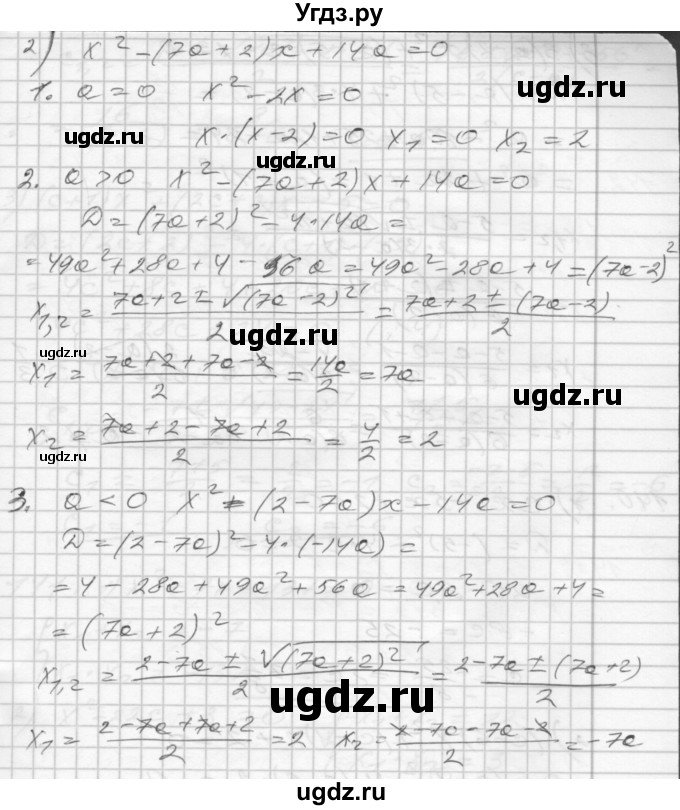 Угдз.ру
2) x² - (7a + 2)x + 14a = 0
1. a = 0 x² - 2x = 0
ugdz.ru
ugdz.ru x · (x - 2) = 0 x₁ = 0 x₂ = 2
ugdz.ru
2. a > 0 x² - (7a + 2)x + 14a = 0
D = (7a + 2)² - 4 · 14a =
= 49a² + 28a + 4 - 56a = 49a² - 28a + 4 = (7a - 2)²
x₁,₂ = (7a + 2 ± √(7a - 2)²)/2 = (7a + 2 ± (7a - 2))/2
ugdz.ru
ugdz.ru
x₁ = (7a + 2 + 7a - 2)/2 = 14a/2 = 7a
ugdz.ru
x₂ = (7a + 2 - 7a + 2)/2 = 4/2 = 2
ugdz.ru
ugdz.ru
3. a < 0 x² - (2 - 7a)x - 14a = 0
D = (2 - 7a)² - 4 · (-14a) =
ugdz.ru
= 4 - 28a + 49a² + 56a = 49a² + 28a + 4 =
= (7a + 2)²
x₁,₂ = (2 - 7a ± √(7a + 2)²)/2 = (2 - 7a ± (7a + 2))/2
ugdz.ru
x₁ = (2 - 7a + 7a + 2)/2 = 2 x₂ = (2 - 7a - 7a - 2)/2 = -7a
ugdz.ru